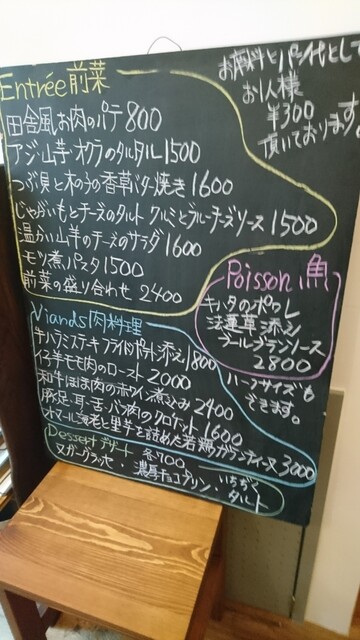 お席料とパン代として
お1人様
¥300
頂いております。
Entrée 前菜
田舎風お肉のパテ 800
アジ・山芋・オクラのタルタル 1500
つぶ貝と木の子の香草バター焼き 1600
じゃがいもとチーズのタルト クルミとブルーチーズソース 1500
温かい山羊のチーズのサラダ 1600
モツ煮パスタ 1500
前菜の盛り合わせ 2400
Poisson 魚
キハタのポワレ
法蓮草添え
ブールブランソース
2800
ハーフサイズも
できます。
Viands 肉料理
牛ハラミステーキ フライドポテト添え 1800
仔羊モモ肉のロースト 2000
和牛ほほ肉の赤ワイン煮込み 2400
豚足・耳・舌・バラ肉のクロケット 1600
オマール海老と里芋を詰めた若鶏のバロンティーヌ 3000
Dessert デザート 各700
ヌガーグラッセ・濃厚チョコプリン・いちじく
タルト